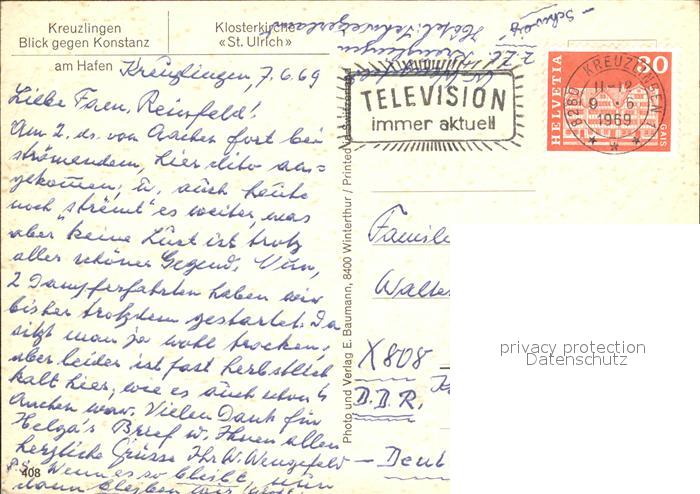 Kreuzlingen
Blick gegen Konstanz
am Hafen
Klosterkirche
«St. Ulrich»
Kreuzlingen, 7.6.69
Liebe Fam. Reinsfeld!
Am 2. ds. von Aachen fort bei
strömendem, hier dito an=
gekommen, u. auch heute
noch "strömt" es weiter, was
aber keine Lust ist trotz
aller schöner Gegend. Nun,
2 Dampferfahrten haben wir
bisher trotzdem gestartet. Da
sitzt man ja wohl trocken,
aber leider ist fast herbstlich
kalt hier, wie es auch schon i/
Aachen war. Vielen Dank für
Helga's Brief u. Ihnen allen
herzliche Grüsse Ihr W. Wengefeld
P.S. Wenn es so bleibt, nun
dann bleiben wir
408
Photo und Verlag E. Baumann, 8400 Winterthur / Printed in Switzerland
- Schweiz
z.Zt. Kreuzlingen
Hotel Schweizerland
TELEVISION
immer aktuell
8280 KREUZLINGEN 1
11-12
9.6.
1969
HELVETIA
30
GAIS
Familie
Walte
X808
D.D.R.
- Deut
privacy protection
Datenschutz